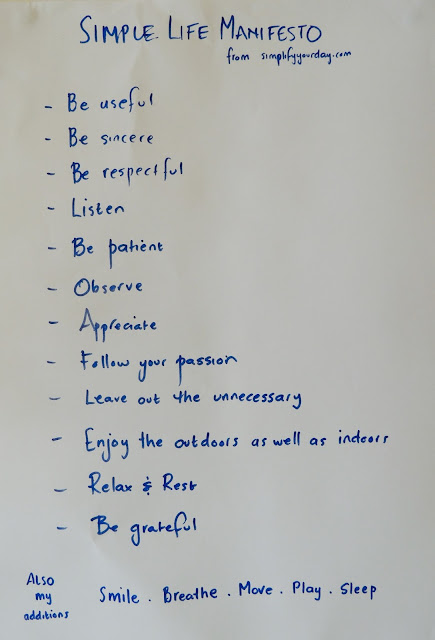 SIMPLE LIFE MANIFESTO
from simplifyyourday.com
- Be useful
- Be sincere
- Be respectful
- Listen
- Be patient
- Observe
- Appreciate
- Follow your passion
- Leave out the unnecessary
- Enjoy the outdoors as well as indoors
- Relax & Rest
- Be grateful
Also
my
additions
Smile . Breathe . Move . Play . Sleep